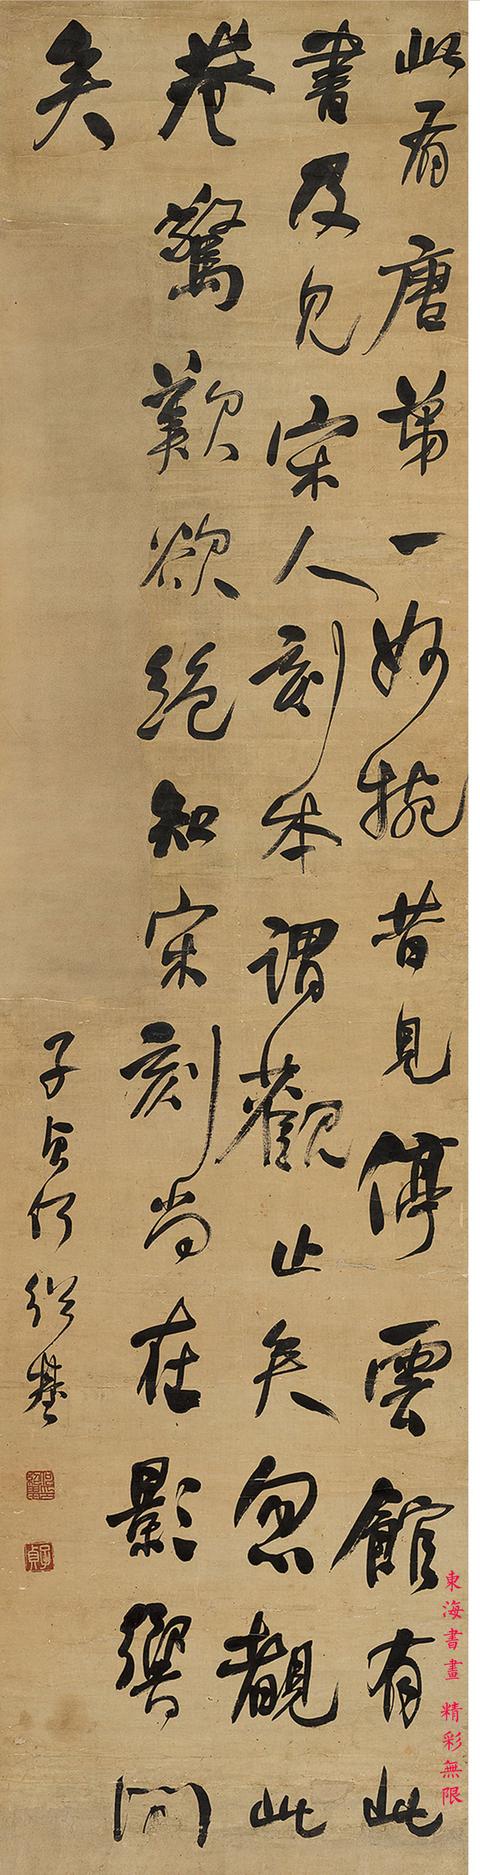 此有唐第一妙捥昔見停雲館有此
書及見宋人刻本謂觀止矣忽覩此
卷驚歎欲絕知宋刻尚在影響間
矣
子貞何紹基
子貞
東海書畫 精彩無限